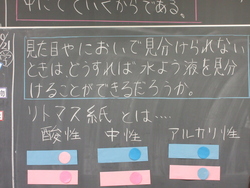 中にでていくからである。
見た目やにおいで見分けられない
ときは、どうすれば水よう液を見分
けることができるだろうか。
リトマス紙とは‥‥
酸性 中性 アルカリ性